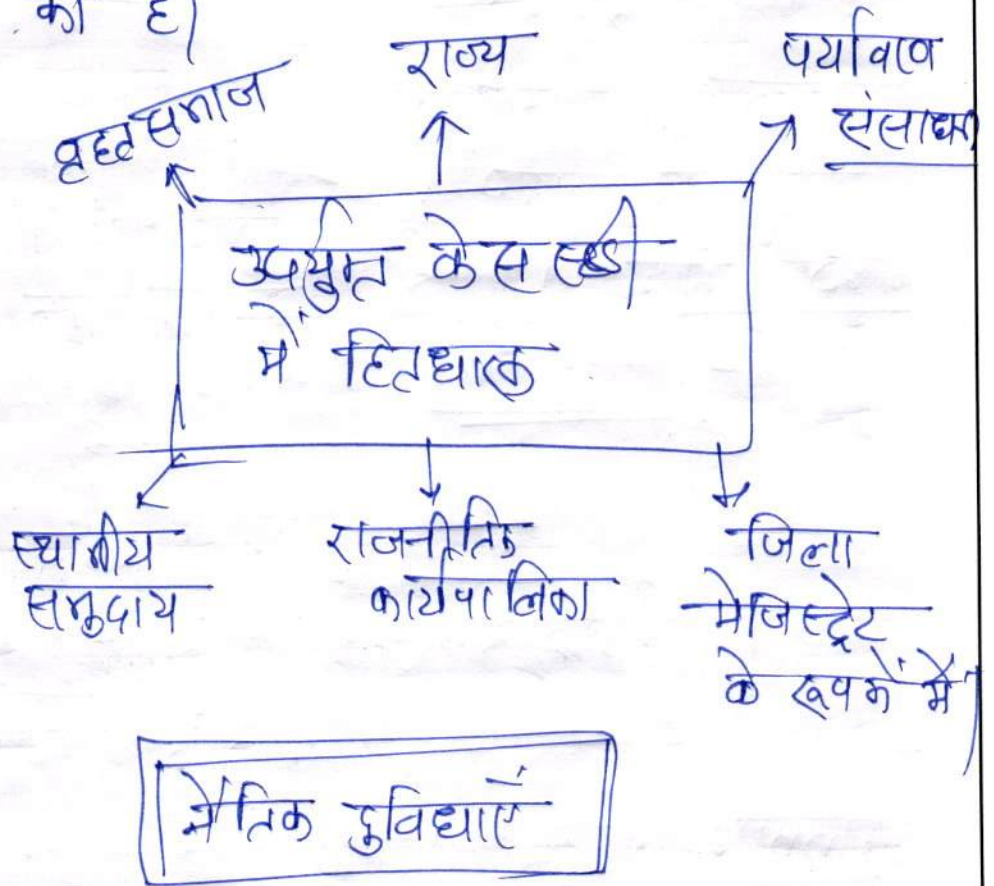 का है।
वृहत समाज
राज्य
पर्यावरण
संसाधन
उपर्युक्त केस स्टडी
में हितधारक
स्थानीय
समुदाय
राजनीतिक
कार्यपालिका
जिला
मेजिस्ट्रेट
के रूप में मैं
नैतिक दुविधाएँ